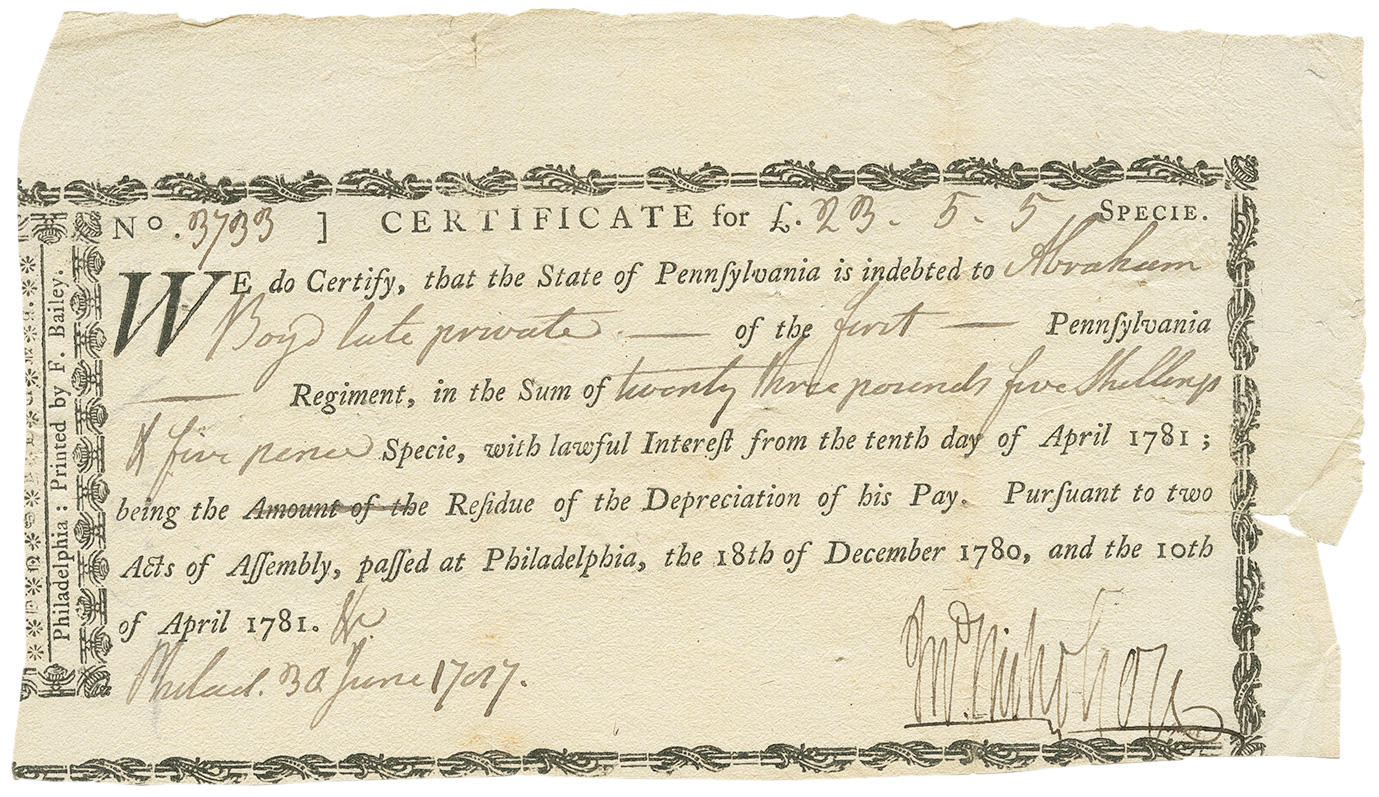 No. 3733 ] CERTIFICATE for £. 23. 5. 5 SPECIE.
WE do Certify, that the State of Pennſylvania is indebted to Abraham
Boyd late private — of the first — Pennſylvania
— Regiment, in the Sum of twenty three pounds five Shillings
& five pence Specie, with lawful Intereſt from the tenth day of April 1781;
being the Amount of the Reſidue of the Depreciation of his Pay. Purſuant to two
Acts of Aſſembly, paſſed at Philadelphia, the 18th of December 1780, and the 10th
of April 1781. &c
Philad. 30 June 1787.
Jnº. Nicholson
Philadelphia: Printed by F. Bailey.